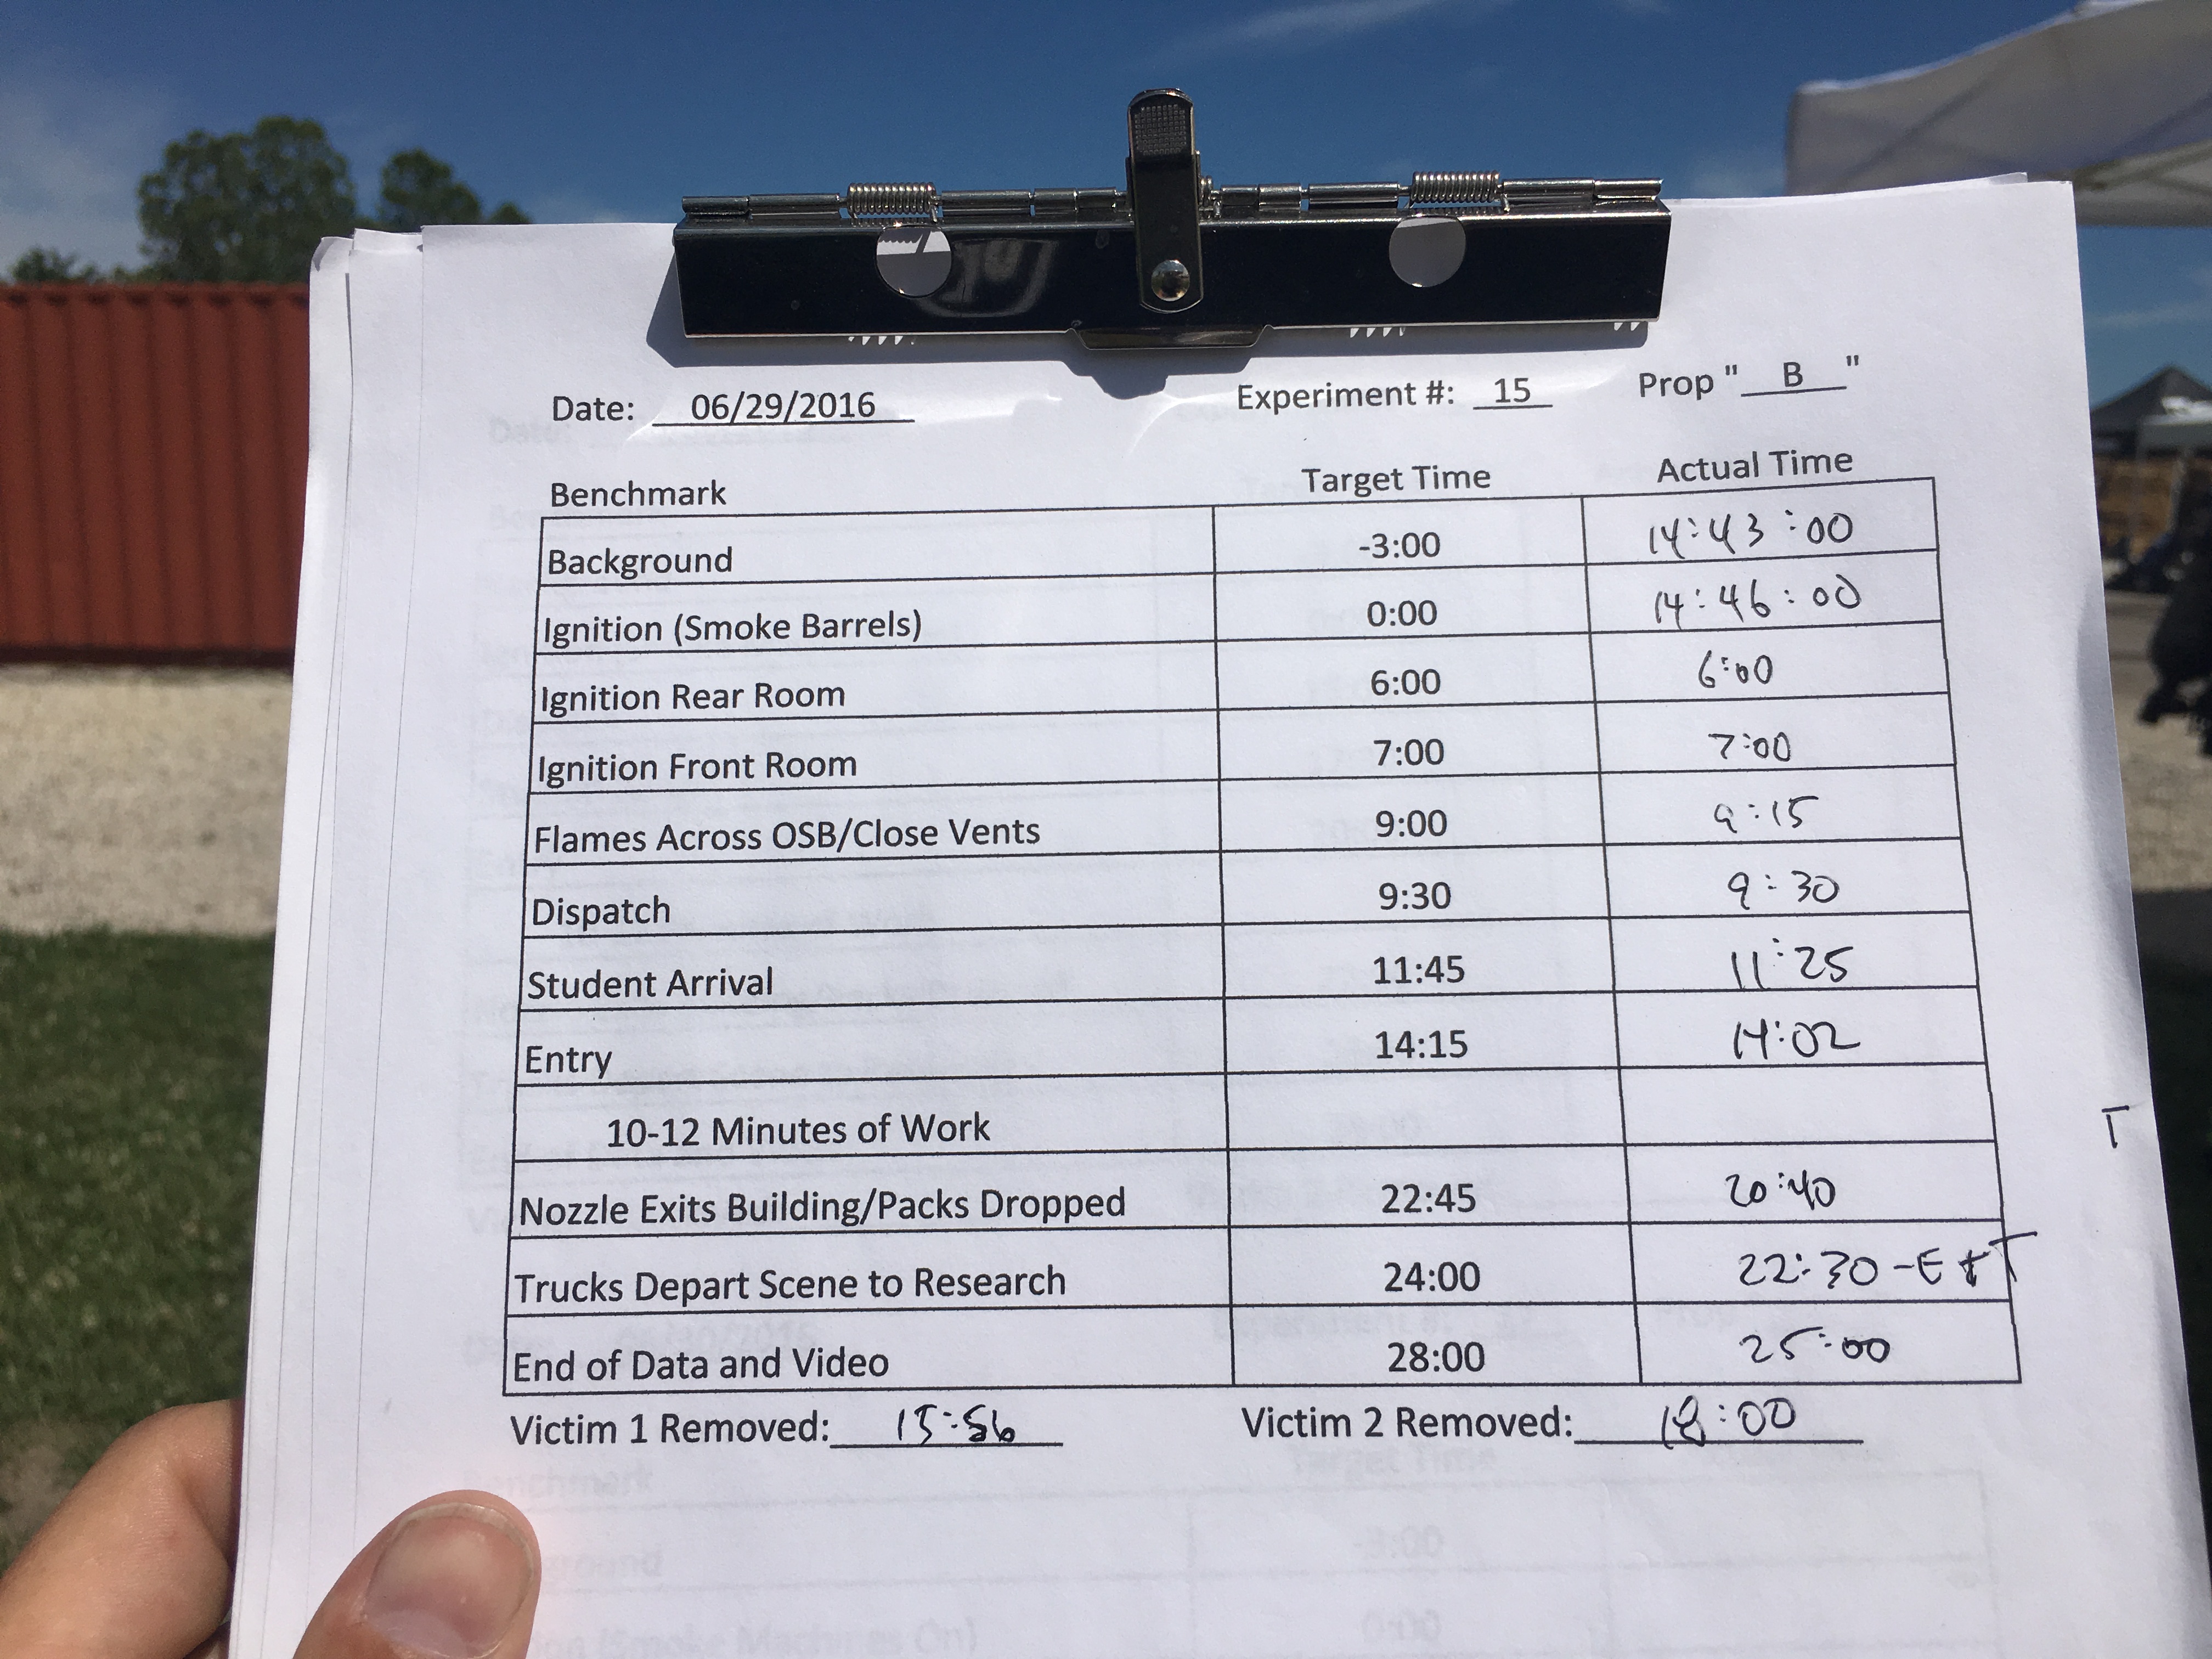 Date: 06/29/2016 Experiment #: 15 Prop " B "
Benchmark Target Time Actual Time
Background -3:00 14:43:00
Ignition (Smoke Barrels) 0:00 14:46:00
Ignition Rear Room 6:00 6:00
Ignition Front Room 7:00 7:00
Flames Across OSB/Close Vents 9:00 9:15
Dispatch 9:30 9:30
Student Arrival 11:45 11:25
Entry 14:15 14:02
10-12 Minutes of Work
T
Nozzle Exits Building/Packs Dropped 22:45 20:40
Trucks Depart Scene to Research 24:00 22:30 - E + T
End of Data and Video 28:00 25:00
Victim 1 Removed: 15:56 Victim 2 Removed: 18:00